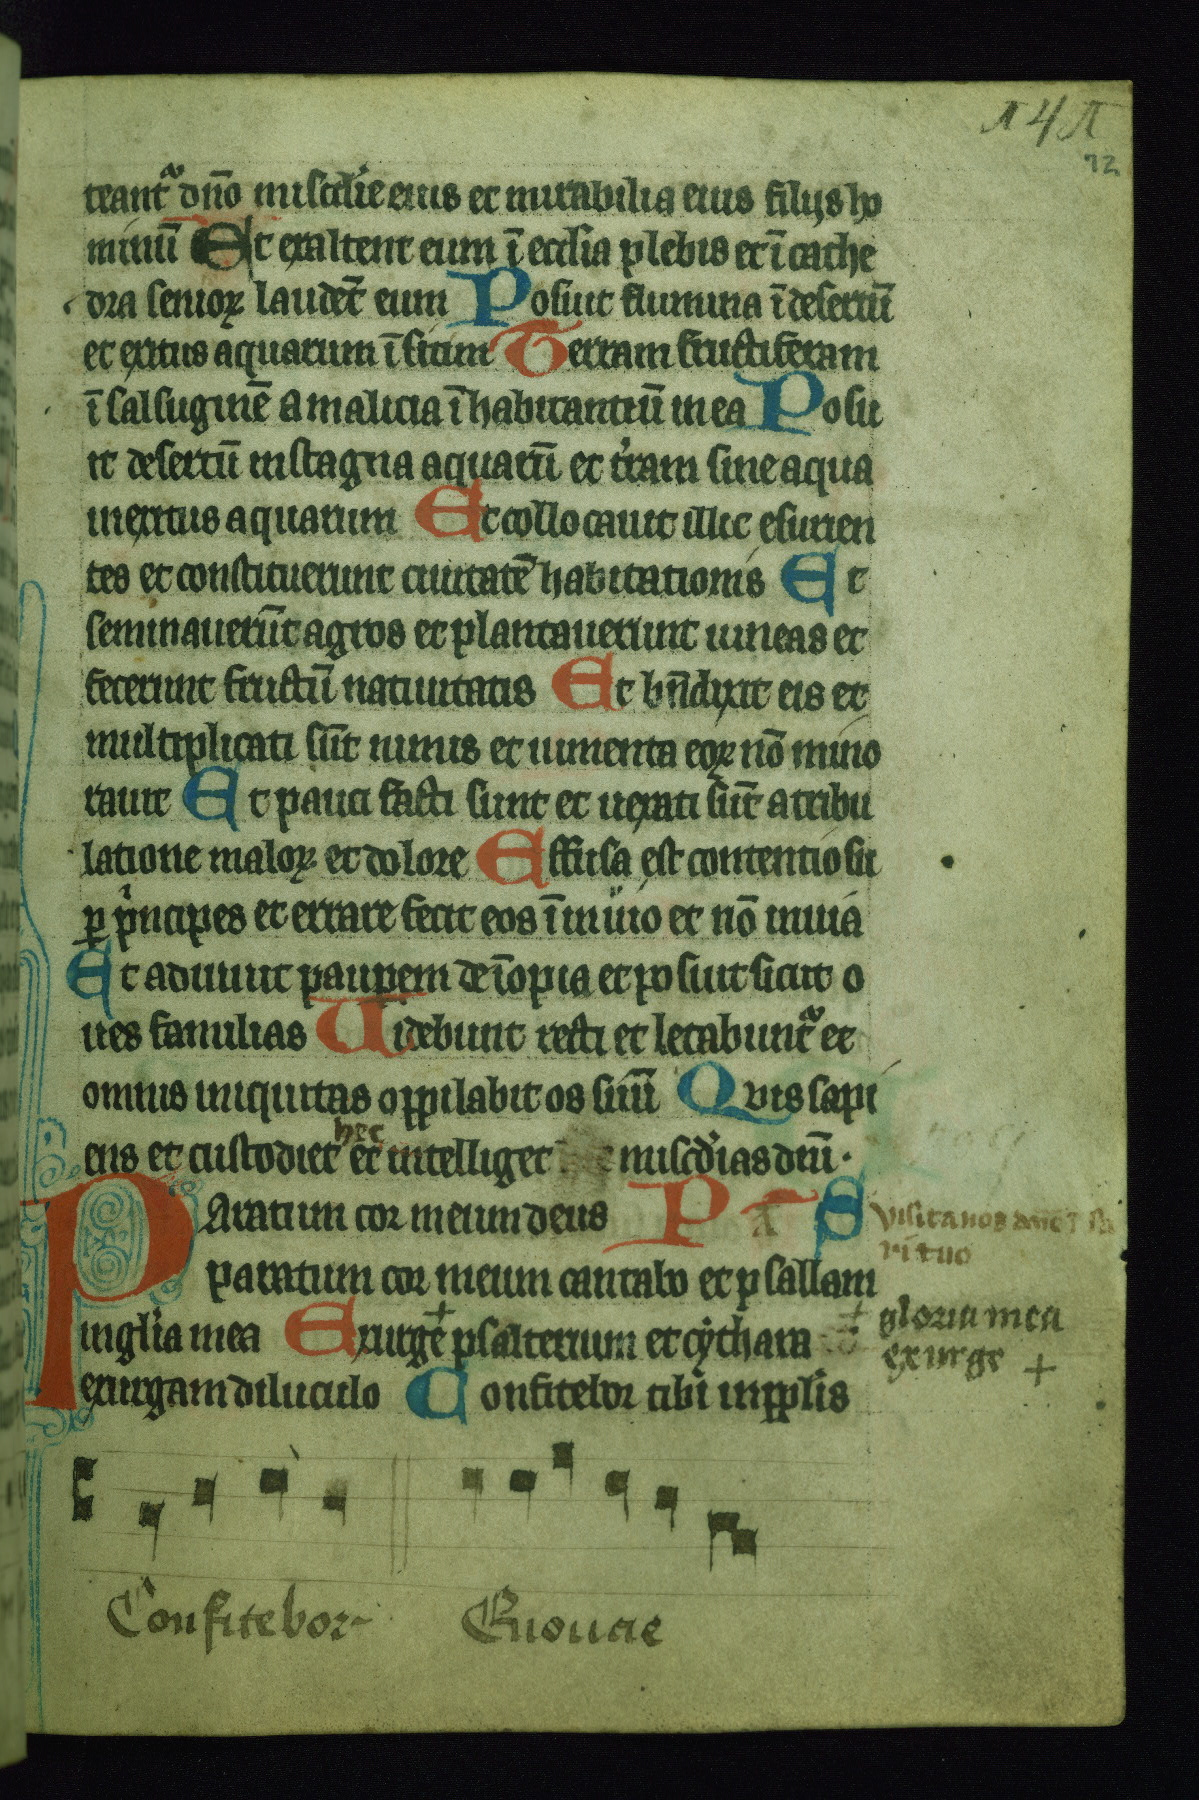 72
teant᷑ dn̄o misc̄die eius et mirabilia eius filijs ho
minū Et exaltent eum ī ecclīa plebis et ī cathe
dra senioꝝ laudēt eum Posuit flumina ī desertū
et exitus aquarum ī sitim Terram fructiferam
ī salsuginē a malicia īhabitantiū in ea Posu
it desertū in stagna aquarū et t̓ram sine aqua
in exitus aquarum Et collocauit illic esurien
tes et constituerunt ciuitatē habitationis Et
seminauerūt agros et plantauerunt uineas et
fecerunt fructū natiuitatis Et bn̄dixit eis et
multiplicati sūt nimis et iumenta eoꝝ nō mino
rauit Et pauci facti sunt et uexati sūt a tribu
latione maloꝝ et dolore Effusa est contentio su
ꝑ p̓ncipes et errare fecit eos ī inuio et nō in uia
Et adiuuit pauꝑem de īopia et posuit sicut o
ues familias Uidebunt recti et letabunt᷑ et
omnis iniquitas oppilabit os suū Quis sapi
ens et custodiet hec et intelliget misc̄dias dn̄i
Paratum cor meum deus Ps
paratum cor meum cantabo et psallam
in gl̄ia mea Exurge + psalterium et cythara
+ gloria mea
exurge +
exurgam diluculo Confitebor tibi in pp̄lis
visita nos
Confitebor Euouae